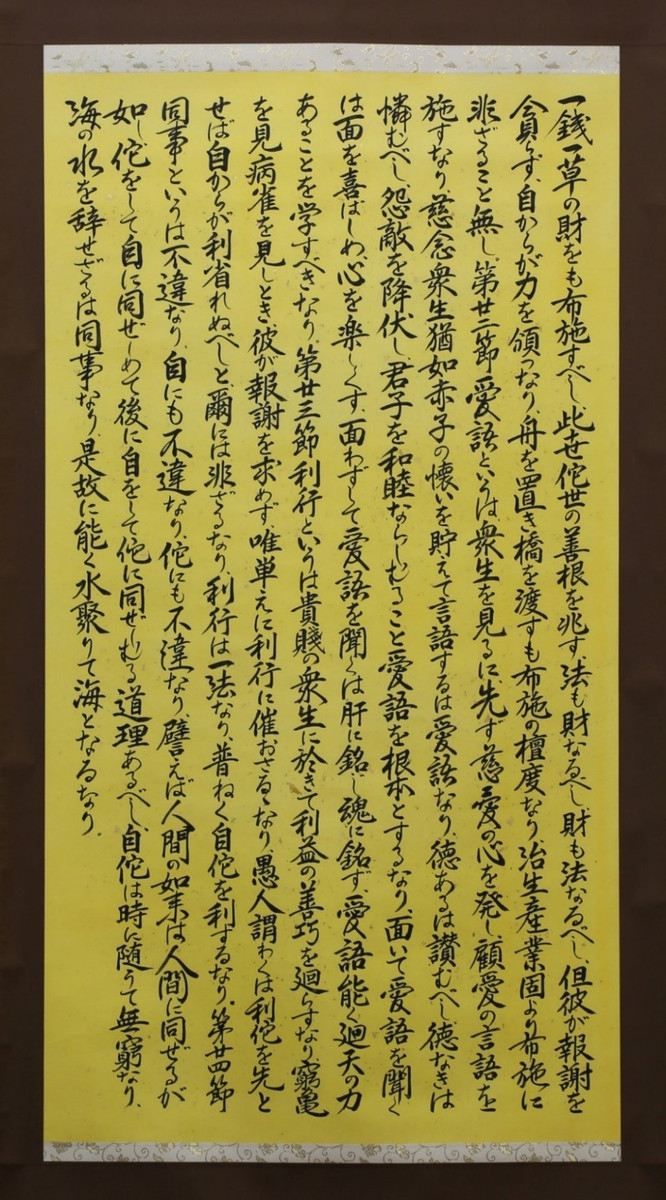 一銭一草の財をも布施すべし、此世佗世の善根を兆す、法も財なるべし、財も法なるべし、但彼が報謝を
貪らず、自からが力を頒つなり、舟を置き橋を渡すも布施の檀度なり、治生産業固より布施に
非ざること無し、第廿二節愛語というは、衆生を見るに、先ず慈愛の心を発し、顧愛の言語を
施すなり、慈念衆生猶如赤子の懐いを貯えて言語するは愛語なり、徳あるは讃むべし、徳なきは
憐むべし、怨敵を降伏し、君子を和睦ならしむること愛語を根本とするなり、面いて愛語を聞く
は面を喜ばしめ、心を楽しくす、面わずして愛語を聞くは肝に銘じ魂に銘ず、愛語能く廻天の力
あることを学すべきなり、第廿三節利行というは貴賎の衆生に於きて利益の善巧を廻らすなり、窮亀
を見病雀を見しとき、彼が報謝を求めず、唯単えに利行に催おさるゝなり、愚人謂わくは利佗を先と
せば自からが利省れぬべしと、爾には非ざるなり、利行は一法なり、普ねく自佗を利するなり、第廿四節
同事というは不違なり、自にも不違なり、佗にも不違なり、譬えば人間の如来は人間に同ぜるが
如し、佗をして自に同ぜしめて後に自をして佗に同ぜしむる道理あるべし、自佗は時に随うて無窮なり、
海の水を辞せざるは同事なり、是故に能く水聚りて海となるなり、